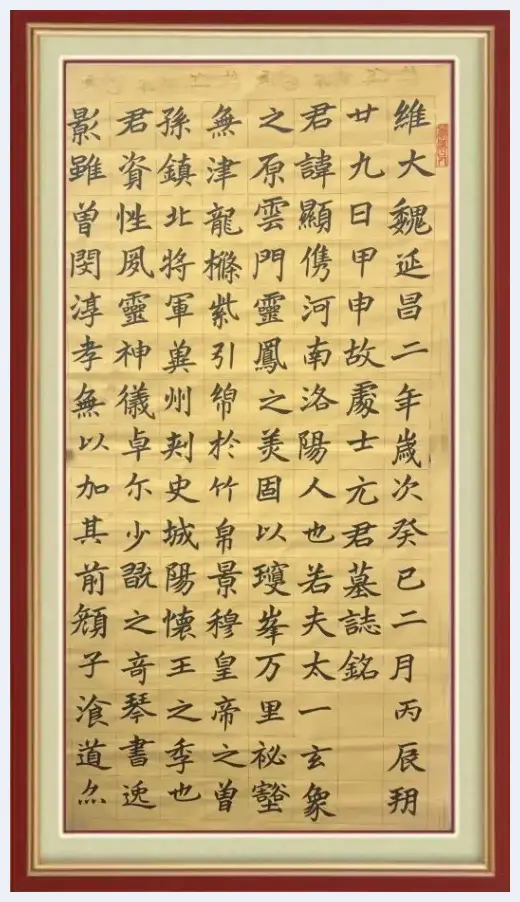 維大魏延昌二年歲次癸巳二月丙辰朔
廿九日甲申故處士元君墓誌銘
君諱顯儁河南洛陽人也若夫太一玄象
之原雲門靈鳳之美固以瓊峯万里祕壑
無津龍樤紫引綿於竹帛景穆皇帝之曾
孫鎮北將軍冀州刺史城陽懷王之季也
君資性夙靈神儀卓尒少翫之奇琴書逸
影雖曾閔淳孝無以加其前顏子湌道亦